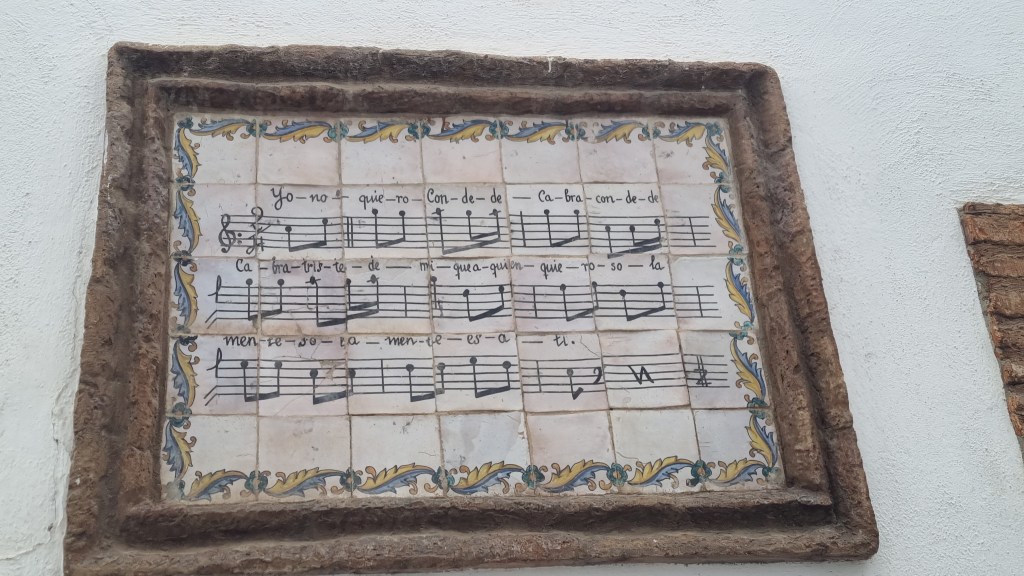 Yo-no- quie-ro- Con-de-de - Ca-bra-con-de-de
Ca-bra-tris-te-de - mi-quea-quien-quie-ro-so-la
men-te-se-ra-men-te-es-a-ti.